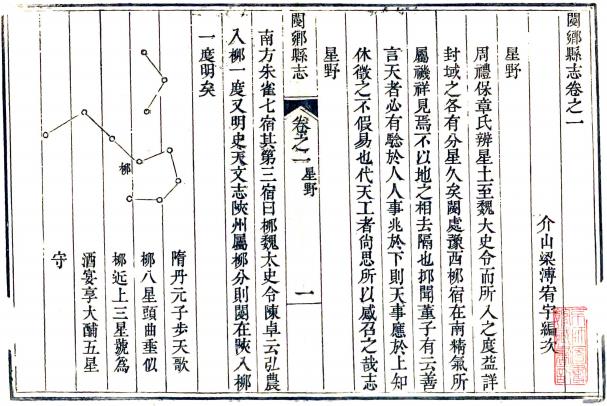 閿鄉縣志卷之一
介山梁溥宥宇編次
星野
周禮保章氏辨星土至魏大史令而所入之度益詳
封域之各有分星久矣閿處豫西柳宿在南精氣所
屬禨祥見焉不以地之相去隔也抑聞董子有云善
言天者必有驗於人人事兆於下則天事應於上知
休徵之不假易也代天工者尙思所以感召之哉志
星野
閿鄉縣志 卷之一 星野 一
南方朱雀七宿其第三宿曰柳魏太史令陳卓云弘農
入柳一度又明史天文志陝州屬柳分則閿在陝入柳
一度明矣
柳
隋丹元子步天歌
柳八星頭曲垂似
柳近上三星號爲
酒宴享大酺五星
守